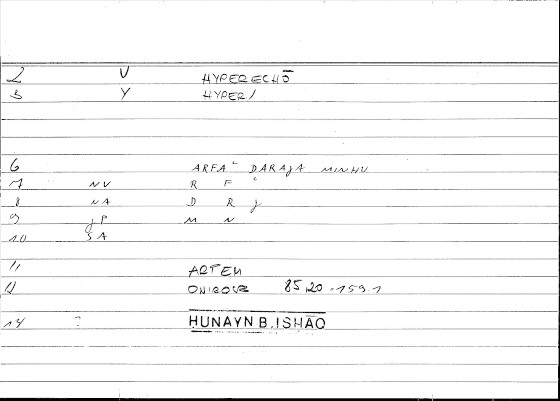 2 V HYPERECHŌ
3 Y HYPER/
6 ARFAʿ DARAJA MINHU
7 NV R F ʿ
8 NA D R J
9 JP M N
10 SA
11 ARTEM
12 85,20 - 159.1
14 ? HUNAYN B. ISHĀQ